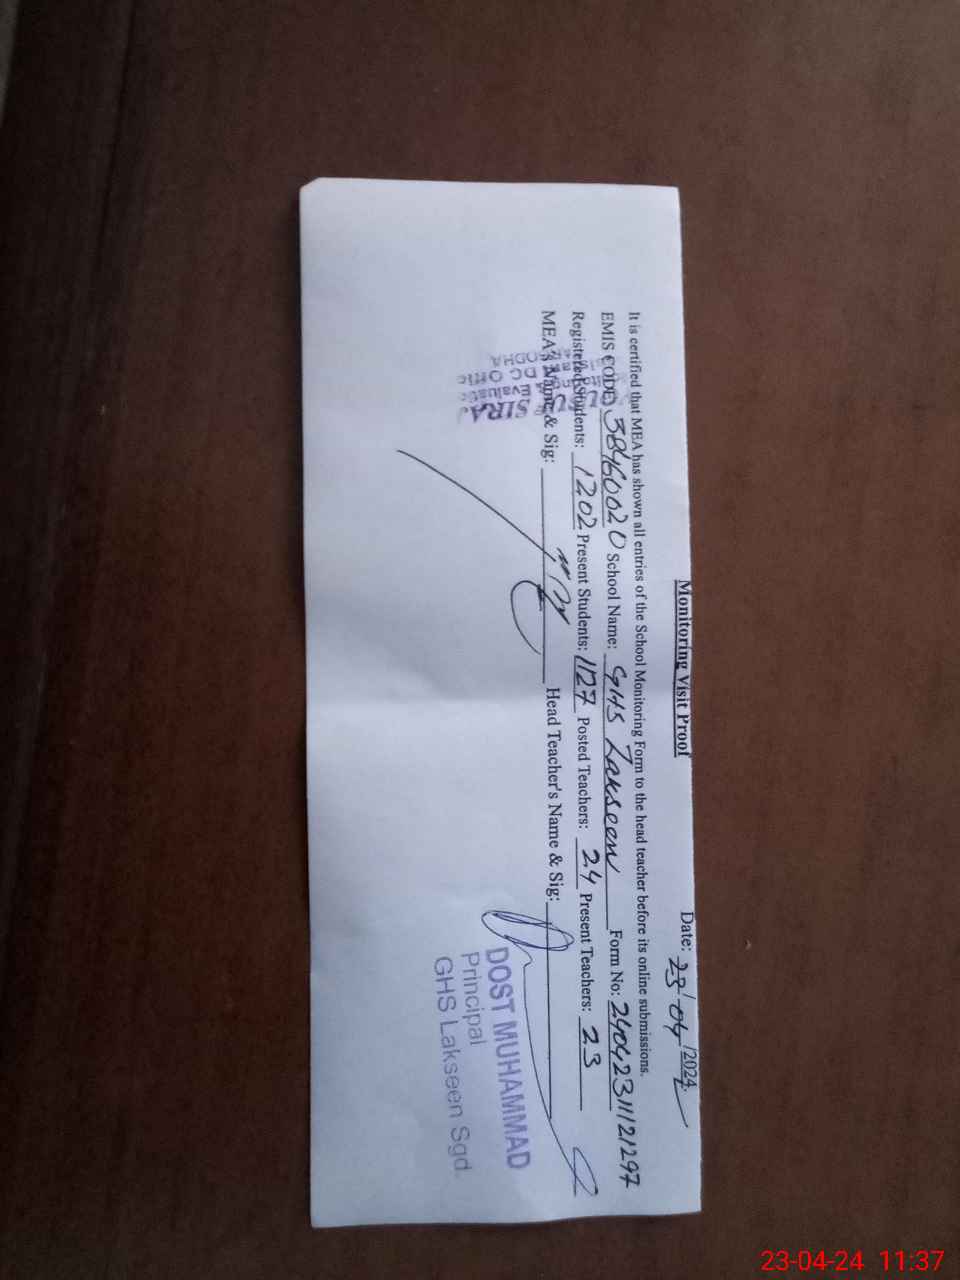 Monitoring Visit Proof
Date: 23/04/2024
It is certified that MEA has shown all entries of the School Monitoring Form to the head teacher before its online submissions.
EMIS CODE: 38460020 School Name: GHS Lakseen Form No: 24042311121297
Registered Students: 1202 Present Students: 1127 Posted Teachers: 24 Present Teachers: 23
MEA's Name & Sig: Head Teacher's Name & Sig:
DOST MUHAMMAD
Principal
GHS Lakseen Sgd
DC Office
23-04-24 11:37